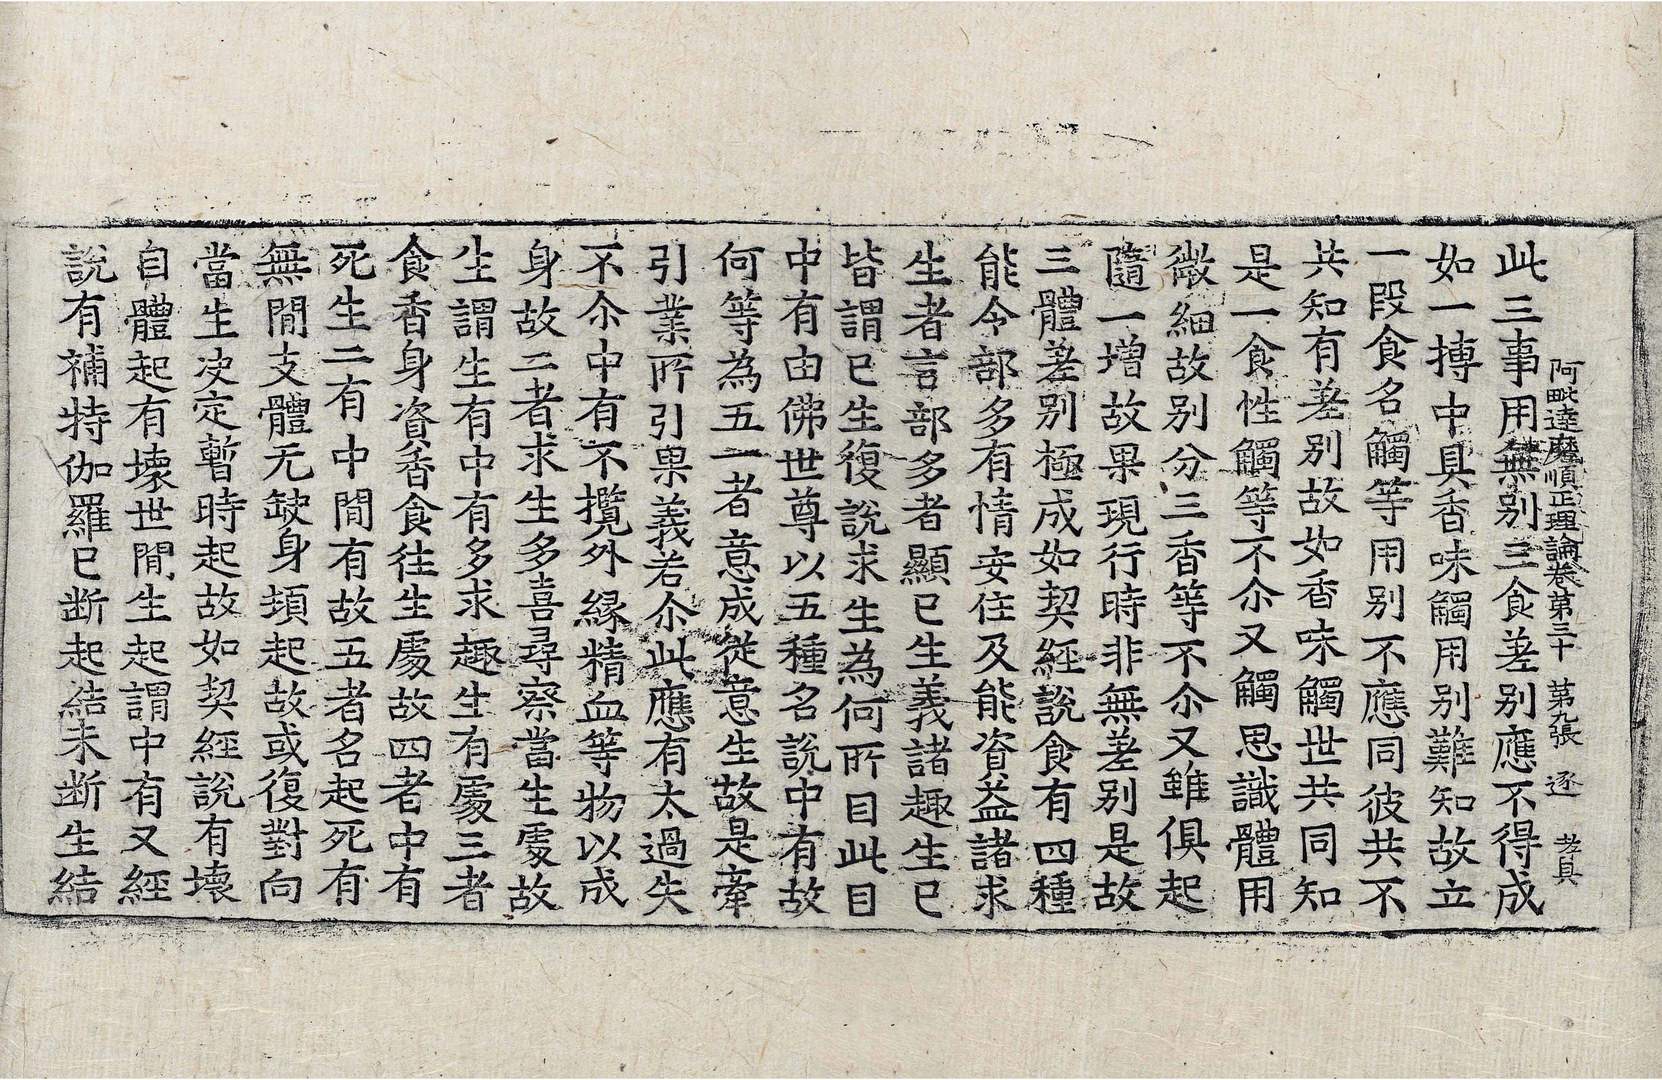 阿毗達磨順正理論卷第三十 第九張 逐 孝具
此三事用無別三食差別應不得成
如一摶中具香味觸用別難知故立
一段食名觸等用別不應同彼共不
共知有差別故如香味觸世共同知
是一食性觸等不尒又觸思識體用
微細故別分三香等不尒又雖俱起
隨一增故果現行時非無差別是故
三體差別極成如契經說食有四種
能令部多有情安住及能資益諸求
生者言部多者顯已生義諸趣生已
皆謂已生復說求生為何所目此目
中有由佛世尊以五種名說中有故
何等為五一者意成從意生故是牽
引業所引果義若尒此應有太過失
不尒中有不攬外緣精血等物以成
身故二者求生多喜尋察當生處故
生謂生有中有多求趣生有處三者
食香身資香食往生處故四者中有
死生二有中間有故五者名起死有
無間支體无缺身頓起故或復對向
當生决定暫時起故如契經說有壞
自體起有壞世間生起謂中有又經
說有補特伽羅已斷起結未斷生結